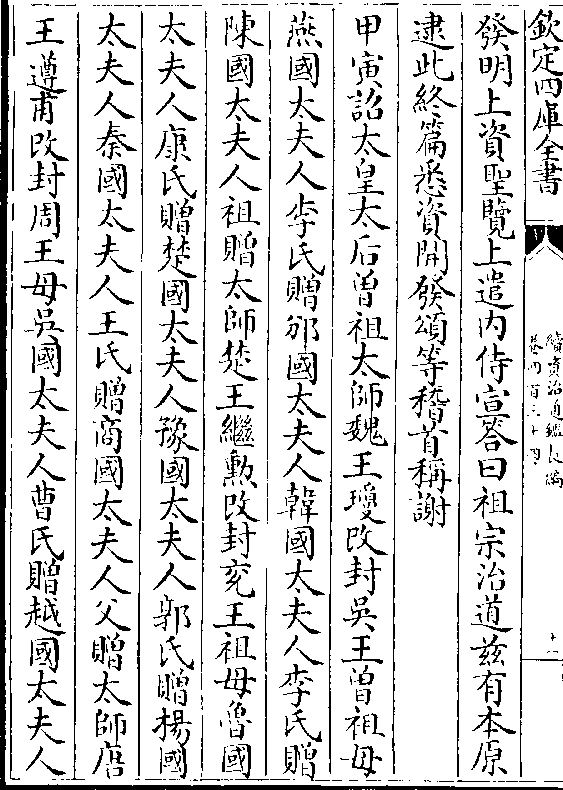 欽定四庫全書
續資治通鑑長編
卷四百三十四
十一
發明上資聖覽上遣内侍宣答曰祖宗治道兹有本原
逮此終篇悉資開發頌等稽首稱謝
甲寅詔太皇太后曾祖太師魏王瓊改封吳王曾祖母
燕國太夫人李氏贈邠國太夫人韓國太夫人李氏贈
陳國太夫人祖贈太師楚王繼勲改封兖王祖母魯國
太夫人康氏贈楚國太夫人豫國太夫人郭氏贈楊國
太夫人秦國太夫人王氏贈商國太夫人父贈太師唐
王遵甫改封周王母吳國太夫人曹氏贈越國太夫人